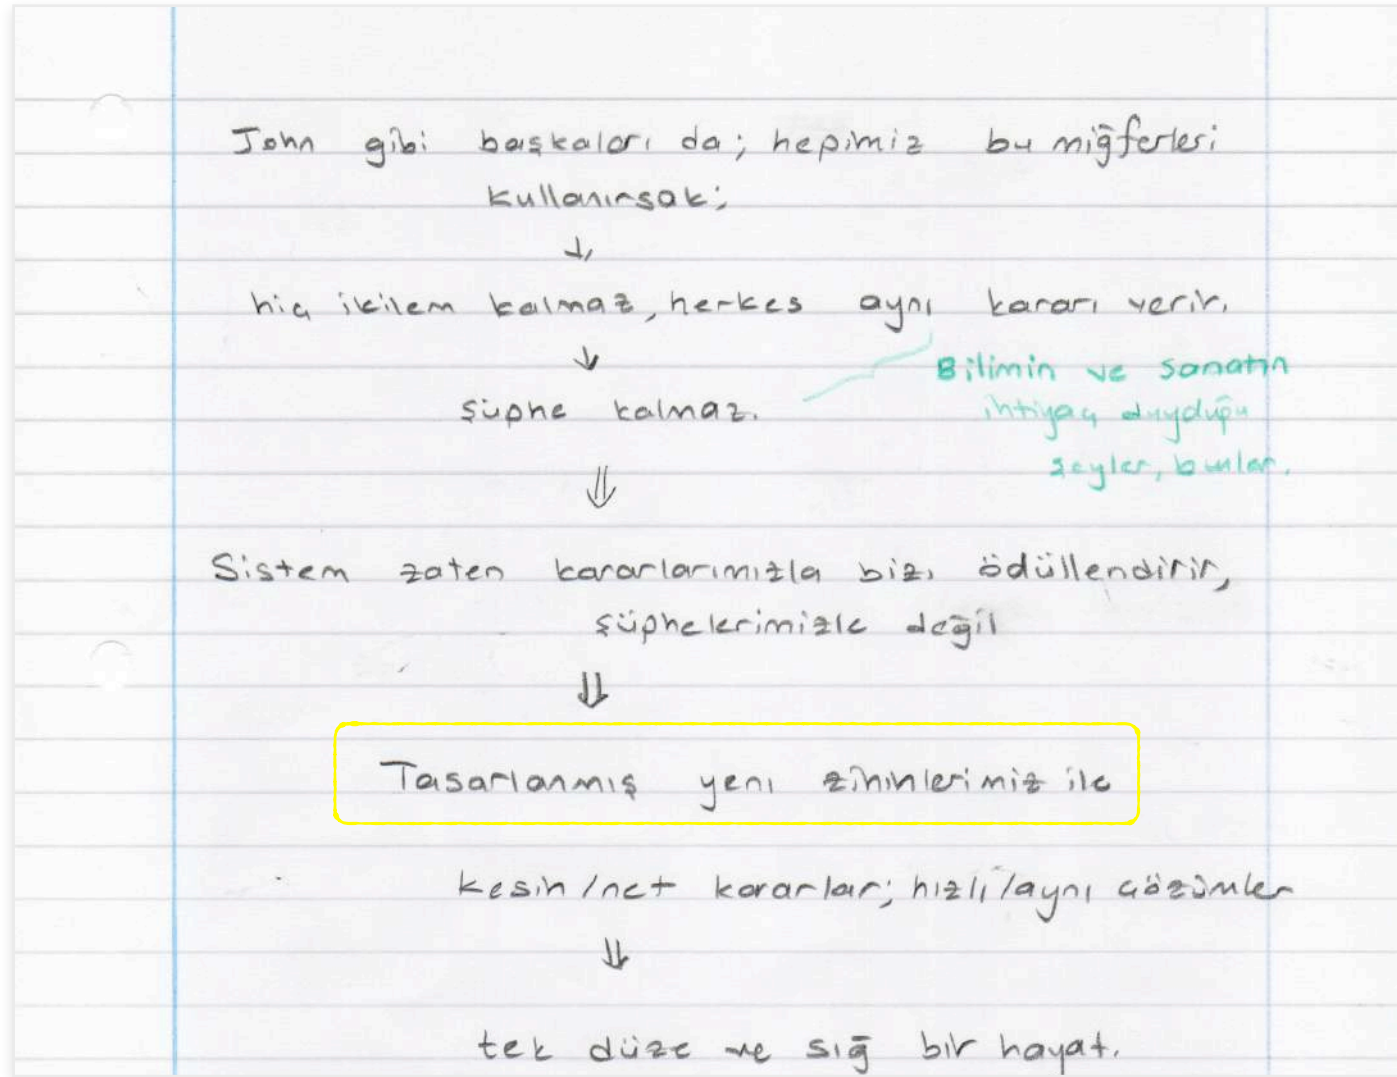 John gibi başkaları da; hepimiz bu miğferleri
kullanırsak;
↓
hiç ikilem kalmaz, herkes aynı kararı verir.
↓
şüphe kalmaz.
Bilimin ve sanatın
ihtiyaç duyduğu
şeyler, bunlar.
⇓
Sistem zaten kararlarımızla bizi ödüllendirir,
şüphelerimizle değil
⇓
Tasarlanmış yeni zihinlerimiz ile
kesin/net kararlar; hızlı/aynı çözümler
⇓
tek düze ve sığ bir hayat.